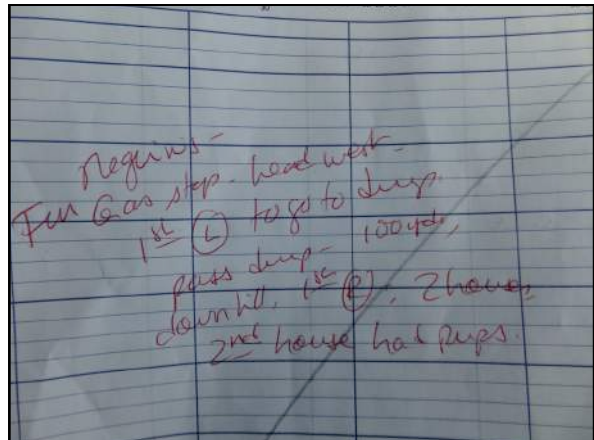 Meguins -
Fun Gas stop - head west -
1st (L) to go to dump
pass dump - 100 yds,
downhill, 1st (R), 2 houses,
2nd house had pups.